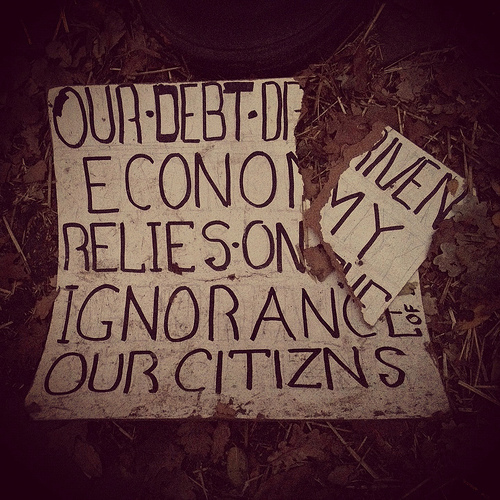 OUR·DEBT·DRIVEN
ECONOMY
RELIES·ON THE
IGNORANCE OF
OUR CITIZNS